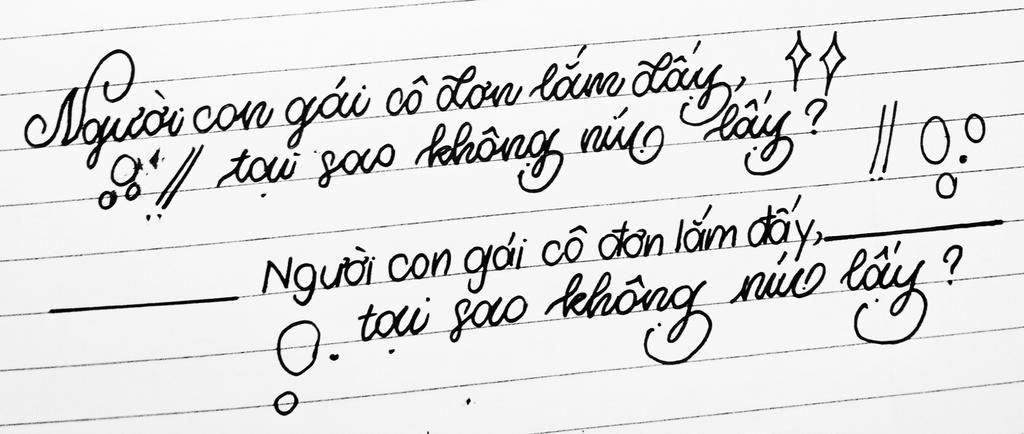 Người con gái cô đơn lắm đấy,
tại sao không níu lấy?
Người con gái cô đơn lắm đấy,
tại sao không níu lấy?